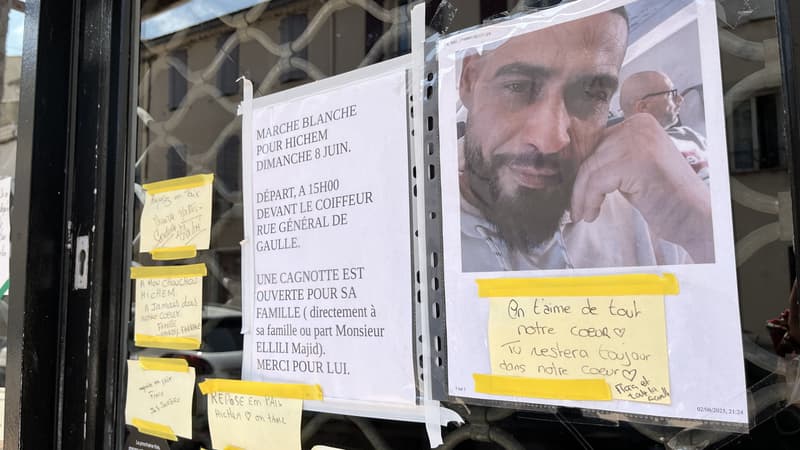 MARCHE BLANCHE
POUR HICHEM
DIMANCHE 8 JUIN.
DÉPART, A 15H00
DEVANT LE COIFFEUR
RUE GÉNÉRAL DE
GAULLE.
UNE CAGNOTTE EST
OUVERTE POUR SA
FAMILLE ( directement à
sa famille ou part Monsieur
ELLILI Majid).
MERCI POUR LUI.
On t'aime de tout
notre coeur
Tu restera toujour
dans notre coeur
02/06/2025, 21:24
A MON CHOUCHOU
HICHEM.
A JAMAIS dans
NOTRE COEUR.
FAMILLE
REPOSE EN PAIS
HICHEM on t'aime